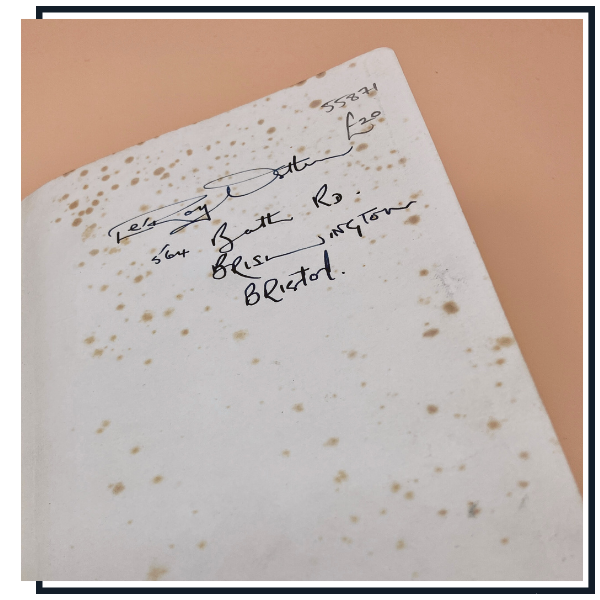 55871
£20
Roy
564 Bath RD.
BRISLINGTON
BRISTOL.